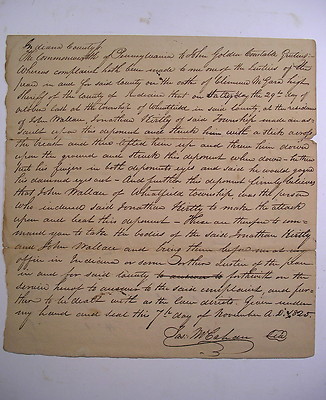 Indiana County ss
The Commonwealth of Pennsylvania to John Golden Constable Greeting
Whereas complaint hath been made to me one of the Justices of the
peace in and for said County on the oath of Clemence McGara high
Sheriff of the County of Indiana that on Saturday the 29th day of
October last at the township of Wheatfield in said County, at the residence
of John Wallace, Jonathan Hertly of said Township made an as=
sault upon this deponent and struck him with a stick across
the breast and then lifted him up and threw him down
upon the ground and struck this deponent when down - he then
put his fingers in both deponents eyes and said he would gouge
his damned eyes out And further this deponent firmly believes
that John Wallace of Wheatfield township, was the person
who induced said Jonathan Hertly to make the attack
upon and beat this deponent - These are therefore to com=
mand you to take the bodies of the said Jonathan Hertly
and John Wallace and bring them before me at my
office in Indiana or some other Justice of the peace
in and for said County to answer to forthwith on the
service hereof to answer to the said complaint and fur=
ther to be dealt with as the law directs. Given under
my hand and seal this 7th day of November A.D. 1825
Jas. McCahan